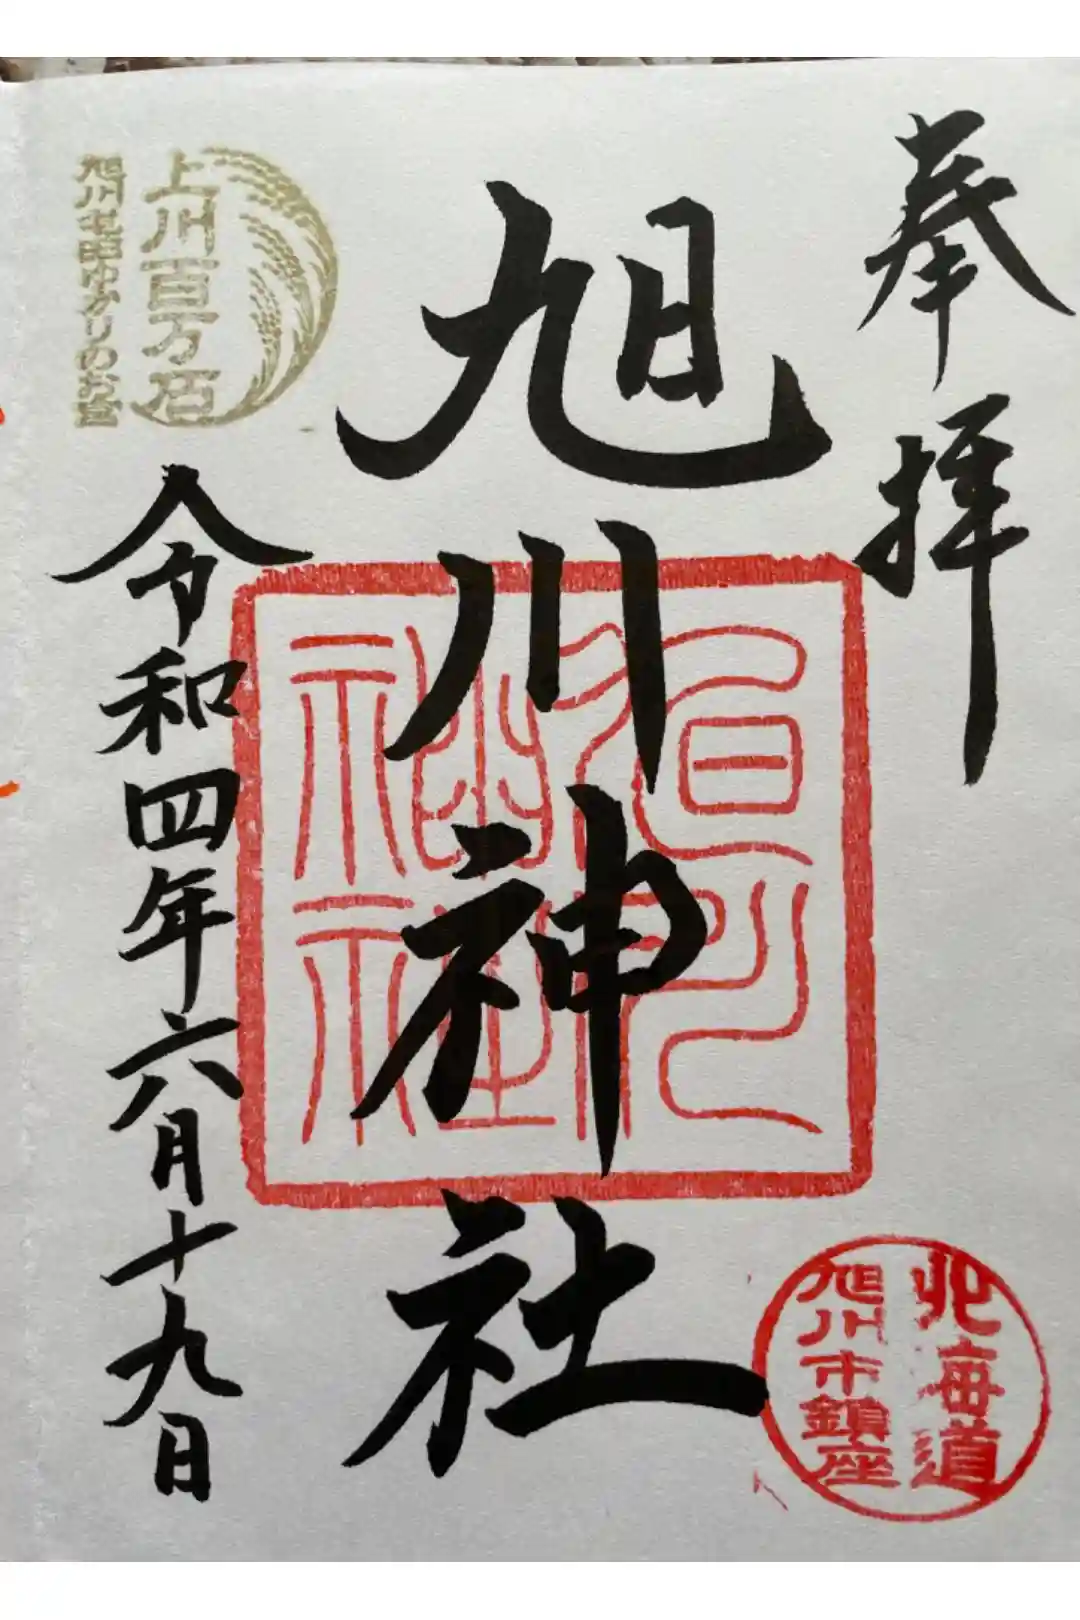 奉拝
旭川神社
令和四年六月十九日
上川百万石
旭川屯田ゆかりのお宮
旭川
神社
北海道
旭川市鎮座